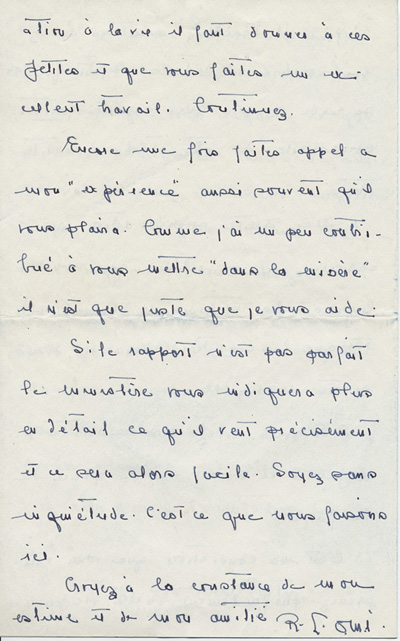 ation à la vie il faut donner à ces
petites et que vous faites un ex-
cellent travail. Continuez.
Encore une fois faites appel a
mon "expérience" aussi souvent qu'il
vous plaira. Comme j'ai un peu contri-
bué à vous mettre "dans la misère"
il n'est que juste que je vous aide.
Si le rapport n'est pas parfait
le ministère vous indiquera plus
en détail ce qu'il veut précisément
et ce sera alors facile. Soyez sans
inquiétude. C'est ce que nous faisons
ici.
Croyez à la constance de mon
estime et de mon amitié R.